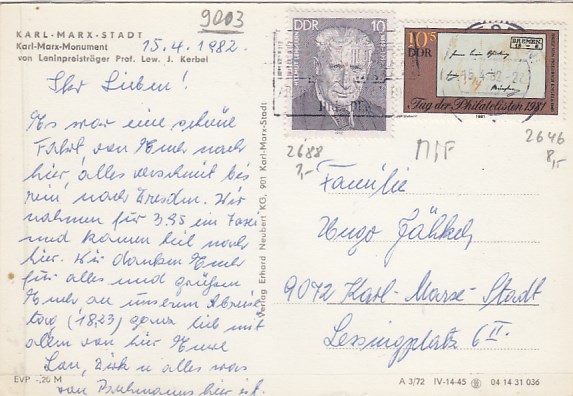 9003
KARL-MARX-STADT
Karl-Marx-Monument
von Leninpreisträger Prof. Lew. J. Kerbel
15.4.1982.
DDR 10
10+5
DDR
BREMEN
Tag der Philatelisten 1981
2688
2646
8,-
MIF
Ihr Lieben!
Es war eine schöne
Fahrt von Euch nach
hier, alles verschneit bis
rein nach Dresden. Wir
nahmen für 3.95 ein Taxe
und kamen heil nach
hier. Wir danken Euch
für alles und grüßen
Euch an unserem
tag (18.23) ganz lieb mit
allem von hier Eure
u alles was
von hier ist.
Familie
Hugo
9072 Karl-Marx-Stadt
Lessingplatz 6 II
Verlag Erhard Neubert KG, 901 Karl-Marx-Stadt
EVP -,20 M
A 3/72 IV-14-45 04 14 31 036